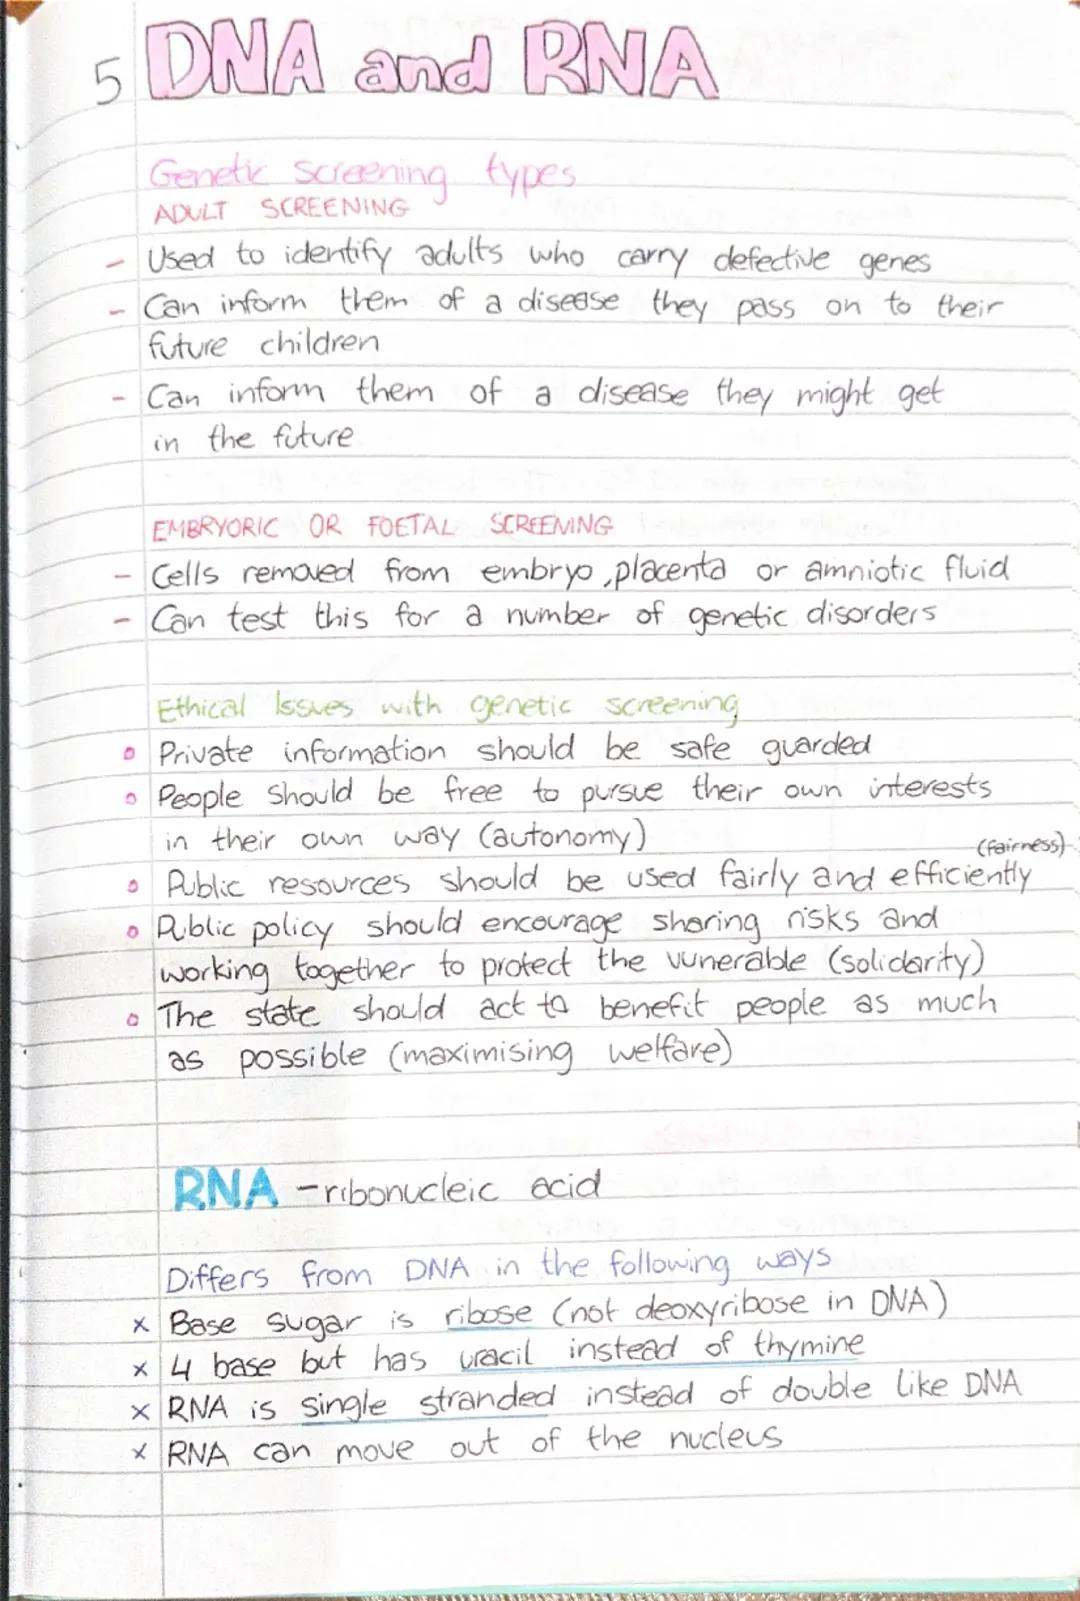 5 DNA and RNA
Genetic screening types
ADULT SCREENING
- Used to identify adults who carry defective genes
- Can inform them of a disease they pass on to their
future children
- Can inform them of a disease they might get
in the future
EMBRYORIC OR FOETAL SCREENING
- Cells removed from embryo, placenta or amniotic fluid
- Can test this for a number of genetic disorders
Ethical Issues with genetic screening
o Private information should be safe guarded
o People should be free to pursue their own interests
in their own way (autonomy)
(fairness)
o Public resources should be used fairly and efficiently
o Public policy should encourage sharing risks and
working together to protect the vunerable (solidarity)
o The state should act to benefit people as much
as possible (maximising welfare)
RNA - ribonucleic acid
Differs from DNA in the following ways
x Base sugar is ribose (not deoxyribose in DNA)
x 4 base but has uracil instead of thymine
x RNA is single stranded instead of double like DNA
x RNA can move out of the nucleus